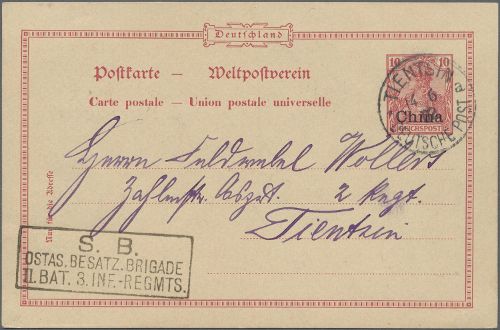 Deutschland
Postkarte – Weltpostverein
Carte postale – Union postale universelle
10 10
China
REICHSPOST
TIENTSIN a
14 6
DEUTSCHE POST
Herrn Feldwebel Wollers
Zahlmstr. Aspzt. 2 Regt.
Tientsin
Nur für die Adresse
S. B.
OSTAS. BESATZ. BRIGADE
II. BAT. 3. INF.-REGMTS.